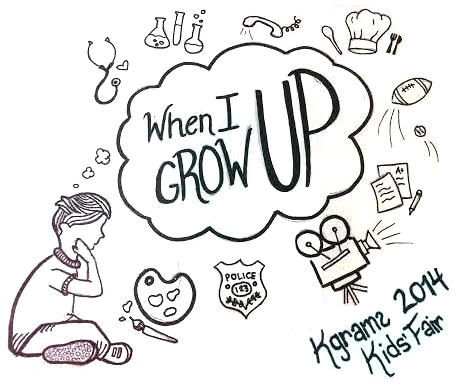 When I
GROW UP
A+
POLICE
123
Kgrams 2014
Kids' Fair